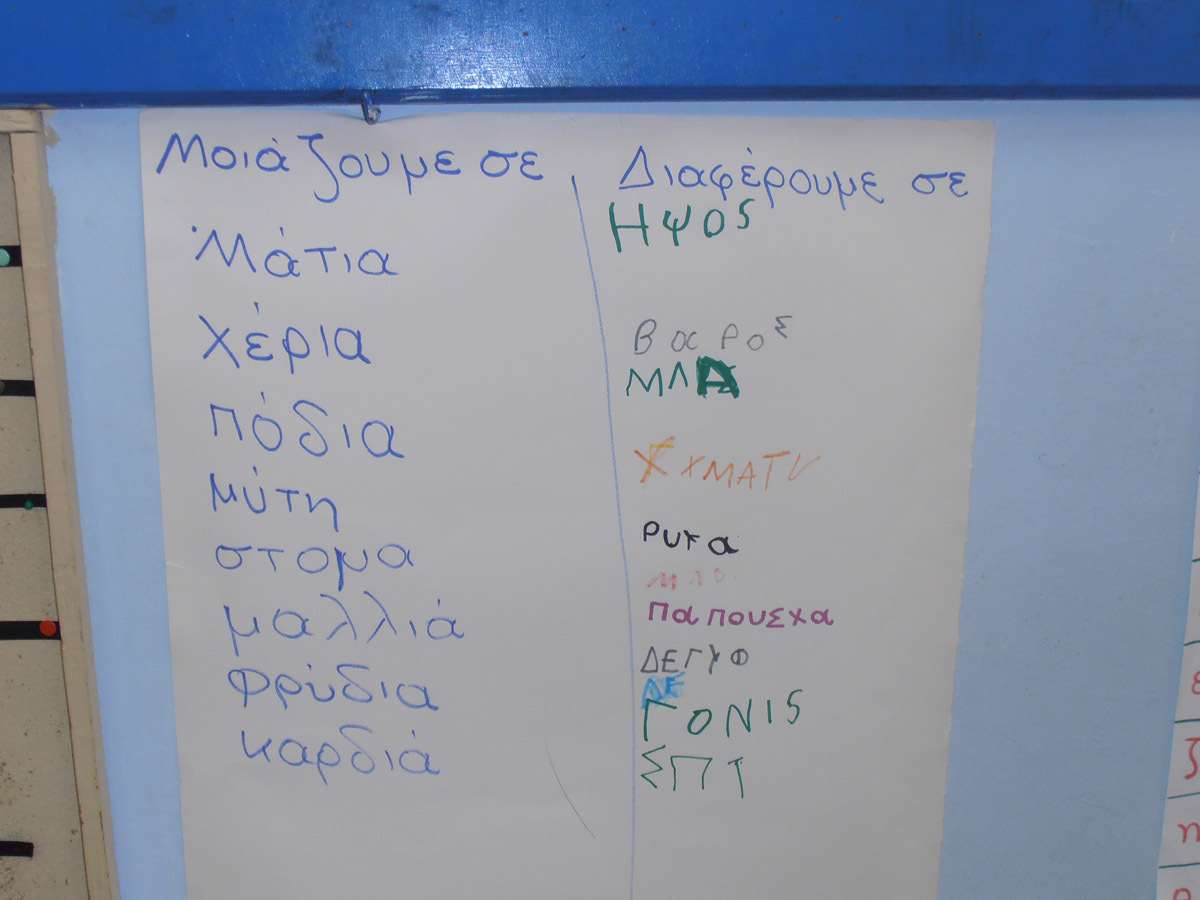 Μοιάζουμε σε
Μάτια
χέρια
πόδια
μύτη
στομα
μαλλιά
φρύδια
καρδιά
Διαφέρουμε σε
ΗΨΟS
ΒαροΣ
ΜΛΑ
ΧΜΑΤV
Ρυχα
παπουεχα
ΔΕΓΧΦ
ΔΕ
ΓΟΝΙS
ΣΠΤ
ε
ζ
η